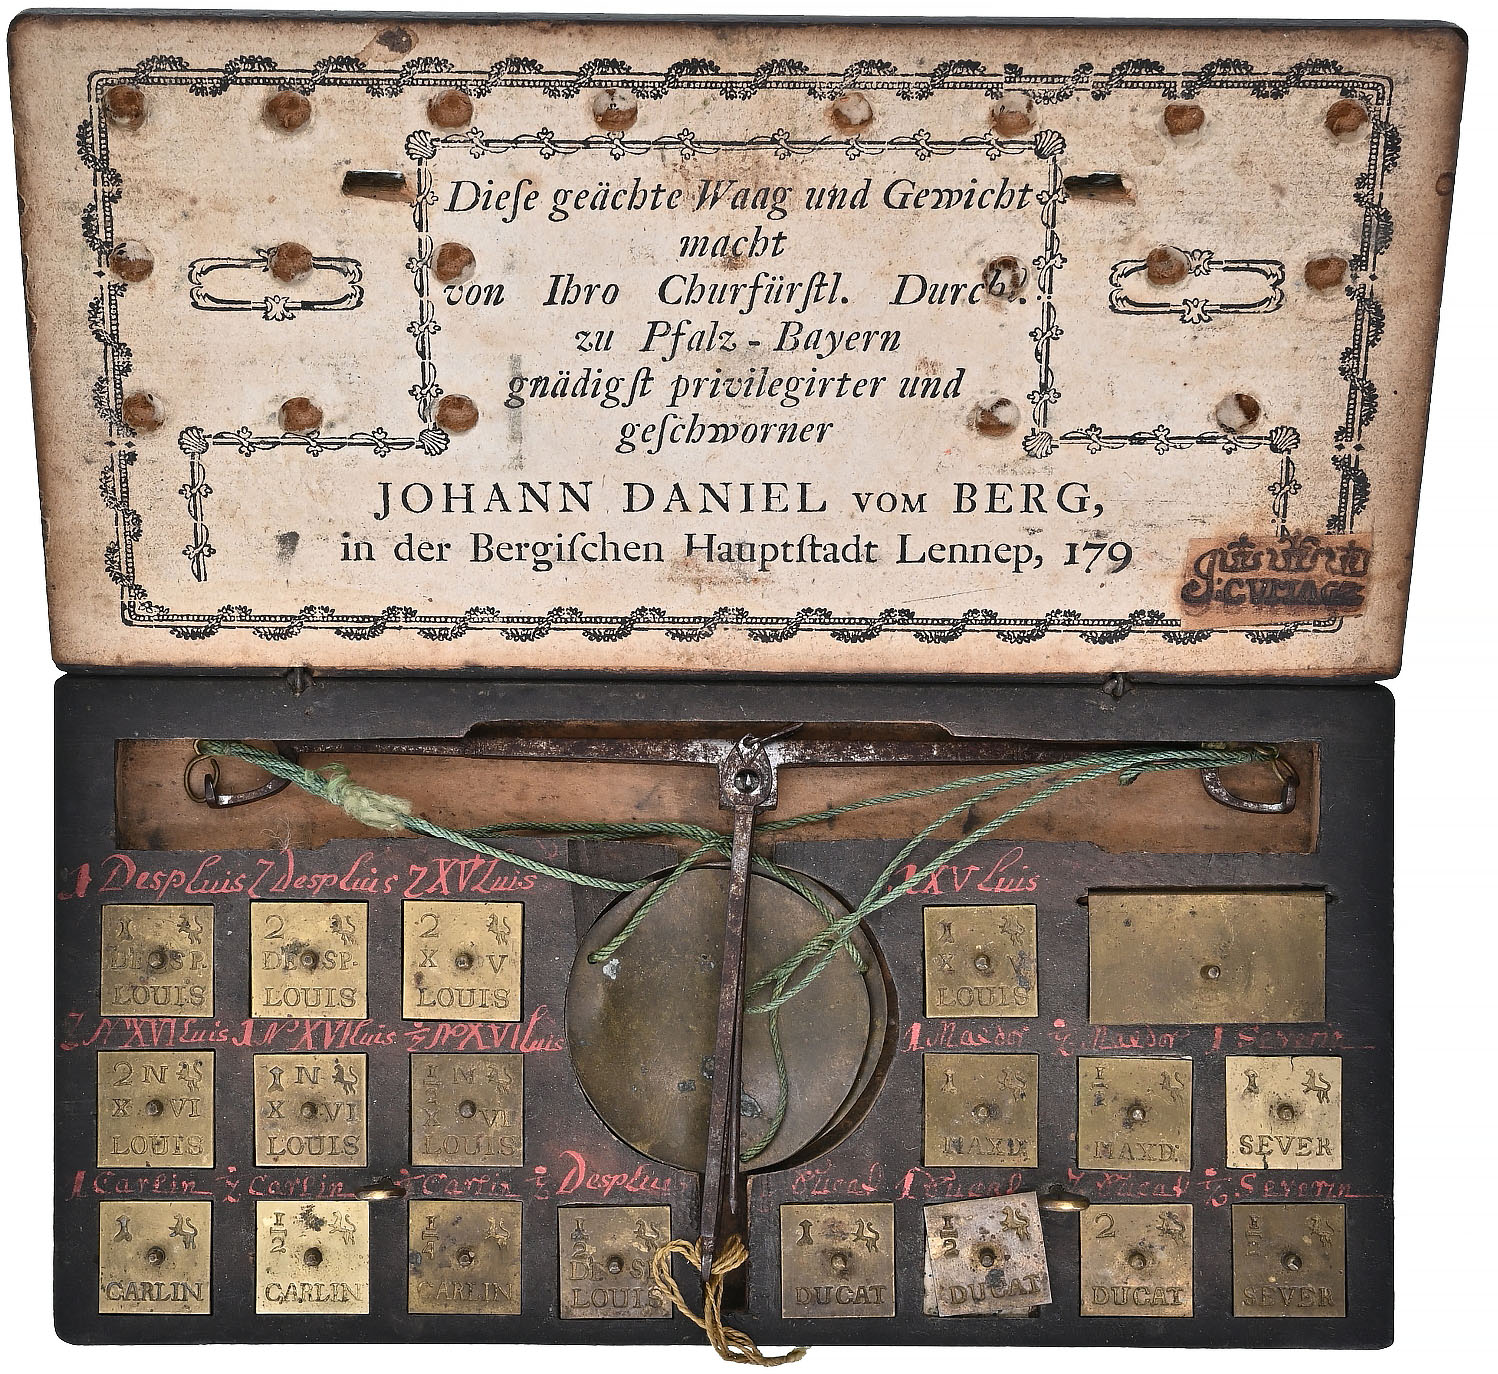 Dieſe geächte Waag und Gewicht
macht
von Ihro Churfürſtl. Durchl.
zu Pfalz - Bayern
gnädigſt privilegirter und
geſchworner
JOHANN DANIEL VOM BERG,
in der Bergiſchen Hauptſtadt Lennep, 179
1 Despluis 2 Despluis 2 XV Luis
1 XV Luis
1
DESP.
LOUIS
2
DESP.
LOUIS
2
X V
LOUIS
1
X V
LOUIS
2 N XVI Luis 1 N XVI luis ½ N XVI Luis
1 Maxdor ½ Maxdor 1 Severin
2 N
X VI
LOUIS
1 N
X VI
LOUIS
1/2 N
X VI
LOUIS
1
MAXD.
1/2
MAXD.
1
SEVER
1 Carlin ½ Carlin Carlin ½ Desplui
Ducat 1 Ducat 2 Ducat ½ Severin
1
CARLIN
1/2
CARLIN
CARLIN
1/2
DESP
LOUIS
1
DUCAT
1/2
DUCAT
2
DUCAT
1/2
SEVER